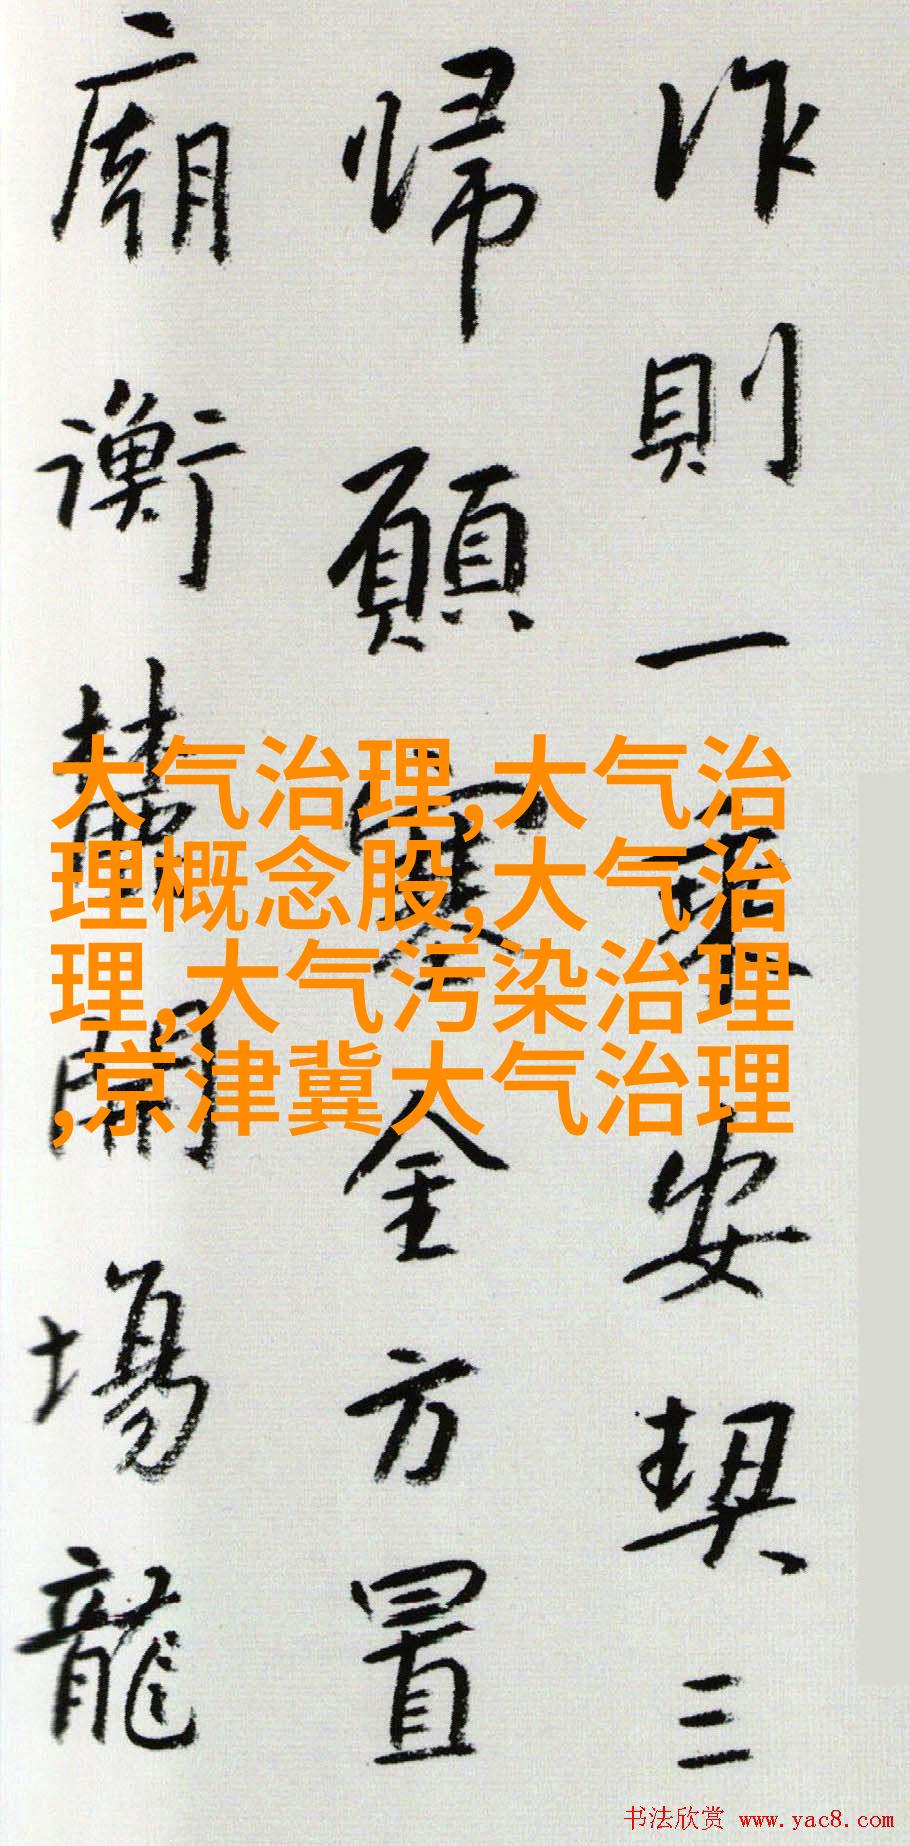 作則一安契三
方置
廟衡開場龍
大气治理,大气治
理概念股,大气治
理,大气污染治理
,京津冀大气治理
书法欣赏 www.yac8.com